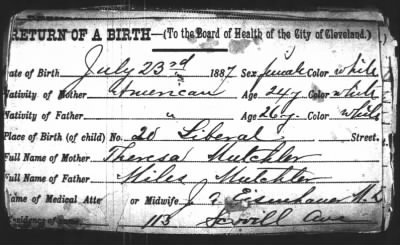 RETURN OF A BIRTH—(To the Board of Health of the City of Cleveland.)
ate of Birth July 23rd 1887 Sex female Color white
Nativity of Mother American Age 24y Color white
Nativity of Father " Age 26y. Color white
Place of Birth (of child) No. 20 Liberal Street.
Full Name of Mother Theresa Mutchler
Full Name of Father Miles Mutchler
ame of Medical Atte or Midwife J Eisenhauer M.D
113 Ave